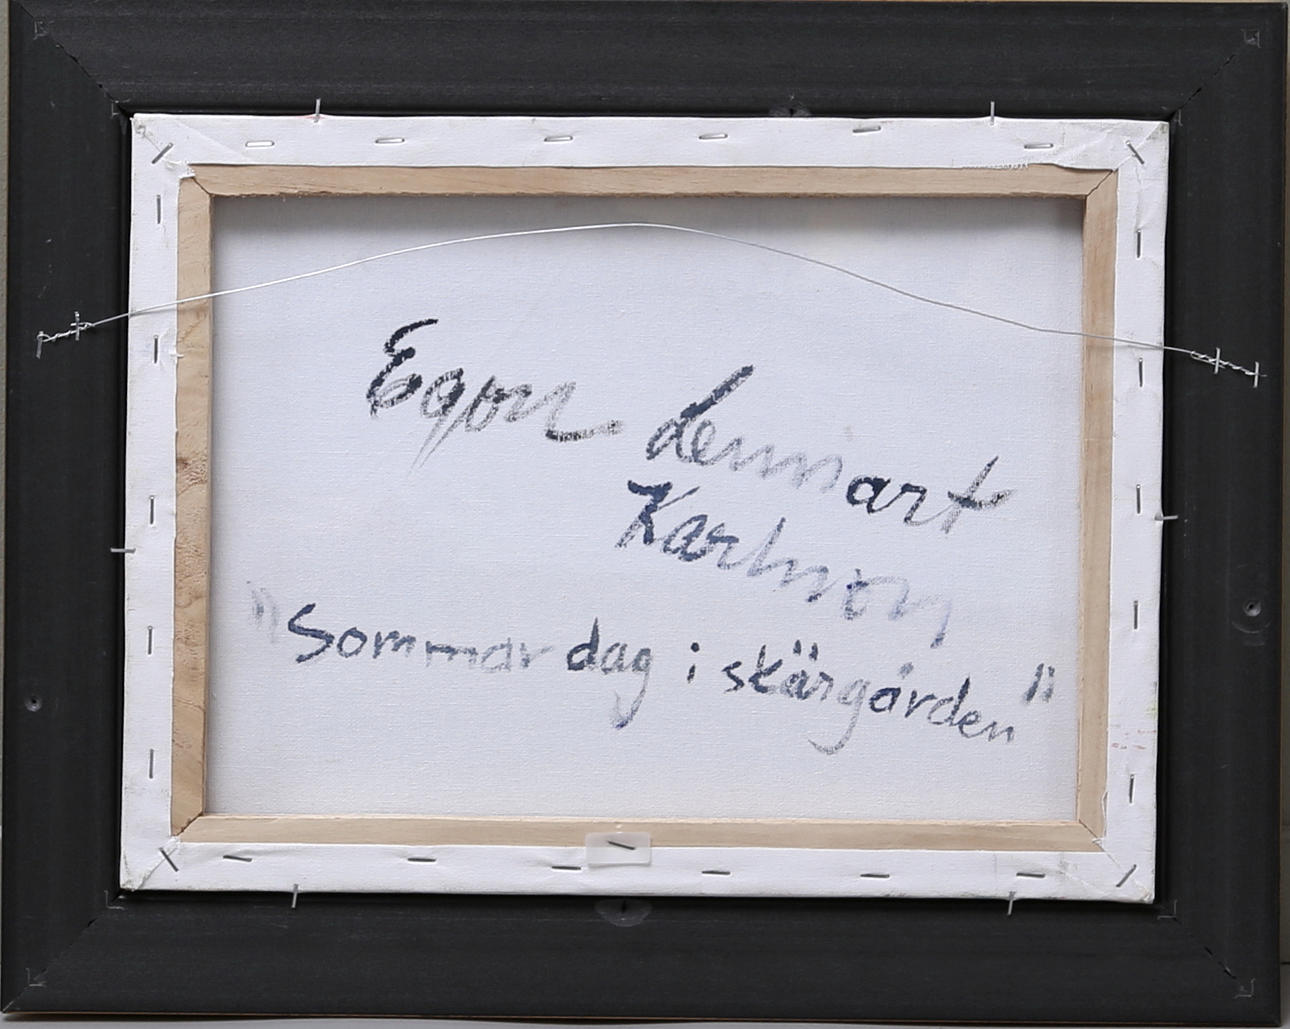 Egon Lennart
Karlsson
"Sommardag i skärgården"